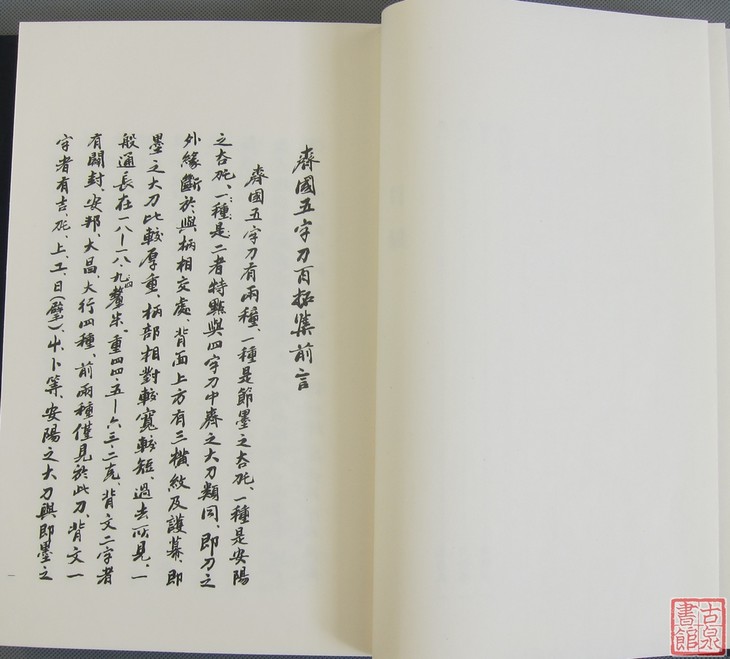 齊國五字刀百拓集前言
齊國五字刀有兩種、一種是節墨之夻㓝、一種是安陽
之夻㓝、一種是二者特點與四字刀中齊之大刀類同、即刀之
外緣斷於與柄相交處、背面上方有三橫紋及護幕、即
墨之大刀比較厚重、柄部相對較寬較短、過去所見、一
般通長在一八–一八.九釐米、重四四.五–六三.二克、背文二字者
有闢封、安邦、大昌、大行四種、前兩種僅見於此刀、背文一
字者有吉、㓝、上、工、日(璧)、㞢、卜等、安陽之大刀與即墨之
一
古泉
書館